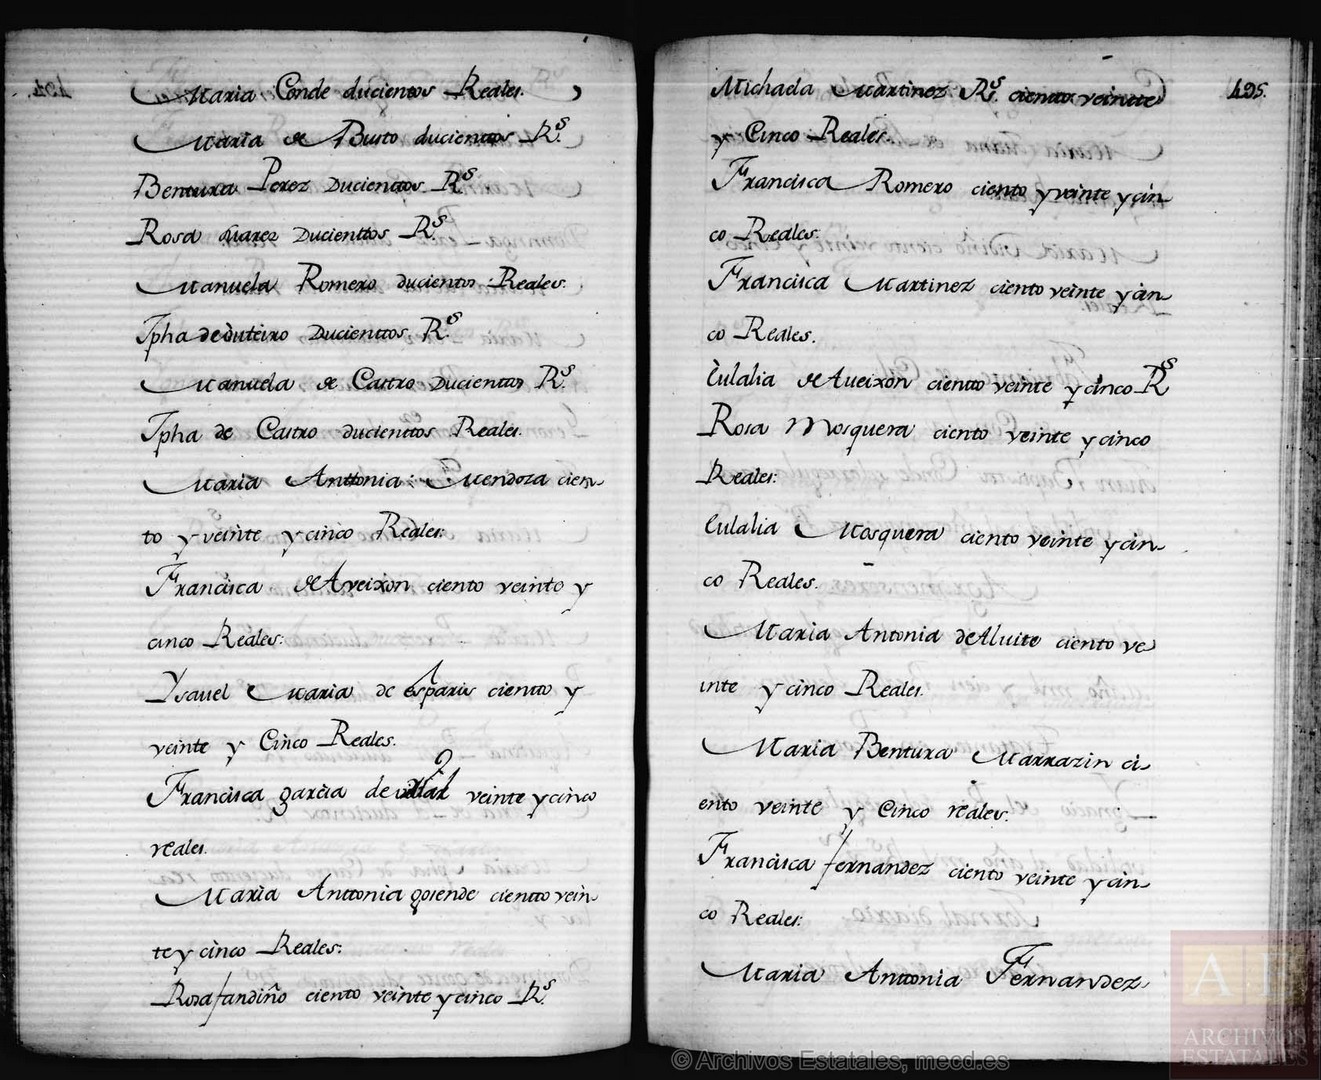 Maria Conde ducientos Reales.
Maria de Busto ducienttos R.s
Bentura Perez Ducienttos R.s
Rosa suarez Ducienttos R.s
Manuela Romero ducientos Reales.
Jpha de outeiro Ducienttos R.s
Manuela de Castro Ducientos R.s
Jpha de Castro ducienttos Reales.
Maria Anttonia Mendoza cien
to y veinte y cinco Reales.
Francisca de Aveixon ciento veinte y
cinco Reales.
Ysavel Maria de esparis ciento y
veinte y Cinco Reales.
Francisca garcia de veinte y cinco
reales.
Maria Anttonia gosende ciento vein
te y cinco Reales.
Rosa fandiño ciento veinte y cinco R.s
Michaela Martinez R.s ciento veinte
y Cinco Reales.
Francisca Romero ciento y veinte y cin
co Reales.
Francisca Martinez ciento veinte y cin
co Reales.
Eulalia de Aveixon ciento veinte y cinco R.s
Rosa Mosquera ciento veinte y cinco
Reales.
Eulalia Mosquera ciento veinte y cin
co Reales.
Maria Antonia de Aluite ciento ve
inte y cinco Reales.
Maria Bentura Marrazin ci
ento veinte y Cinco reales.
Francisca fernandez ciento veinte y cin
co Reales.
Maria Anttonia Fernandez
495.
AE
ARCHIVOS
ESTATALES
© Archivos Estatales, mecd.es